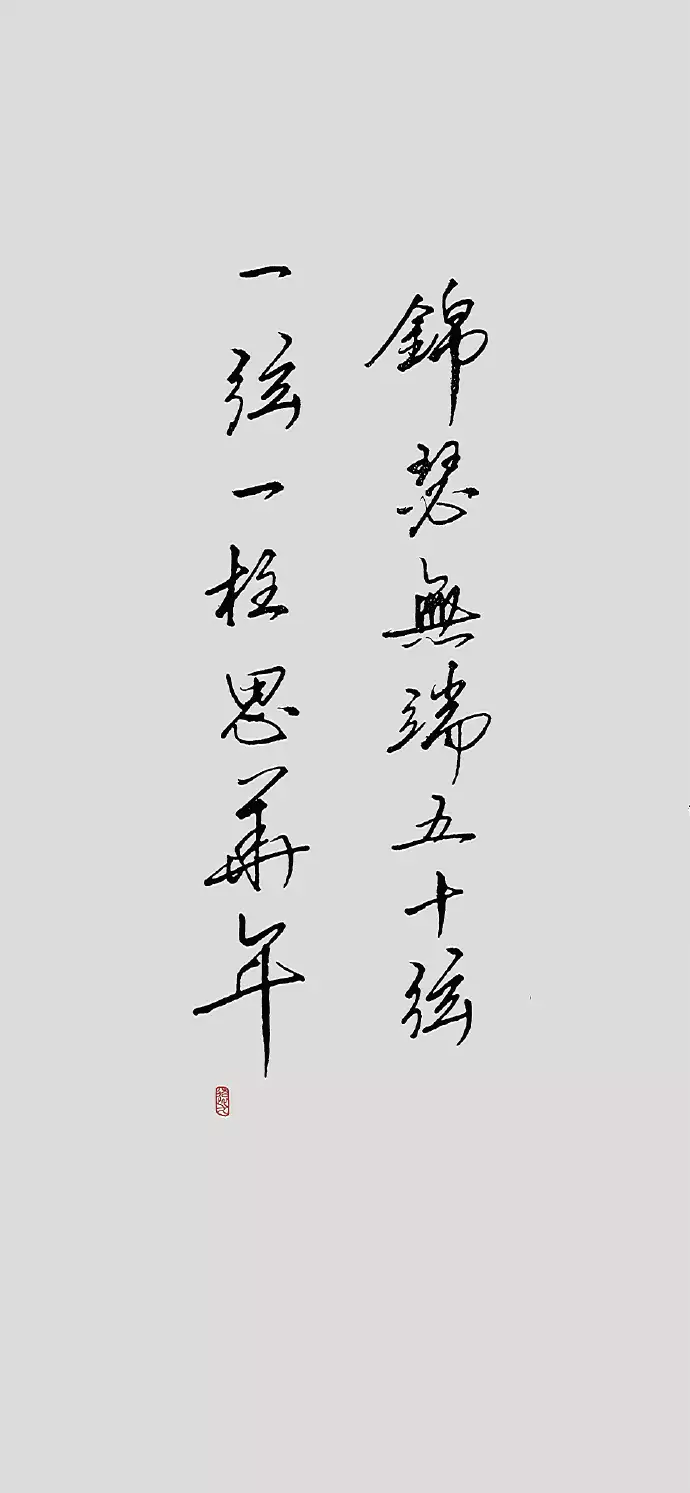 錦瑟無端五十弦
一弦一柱思華年